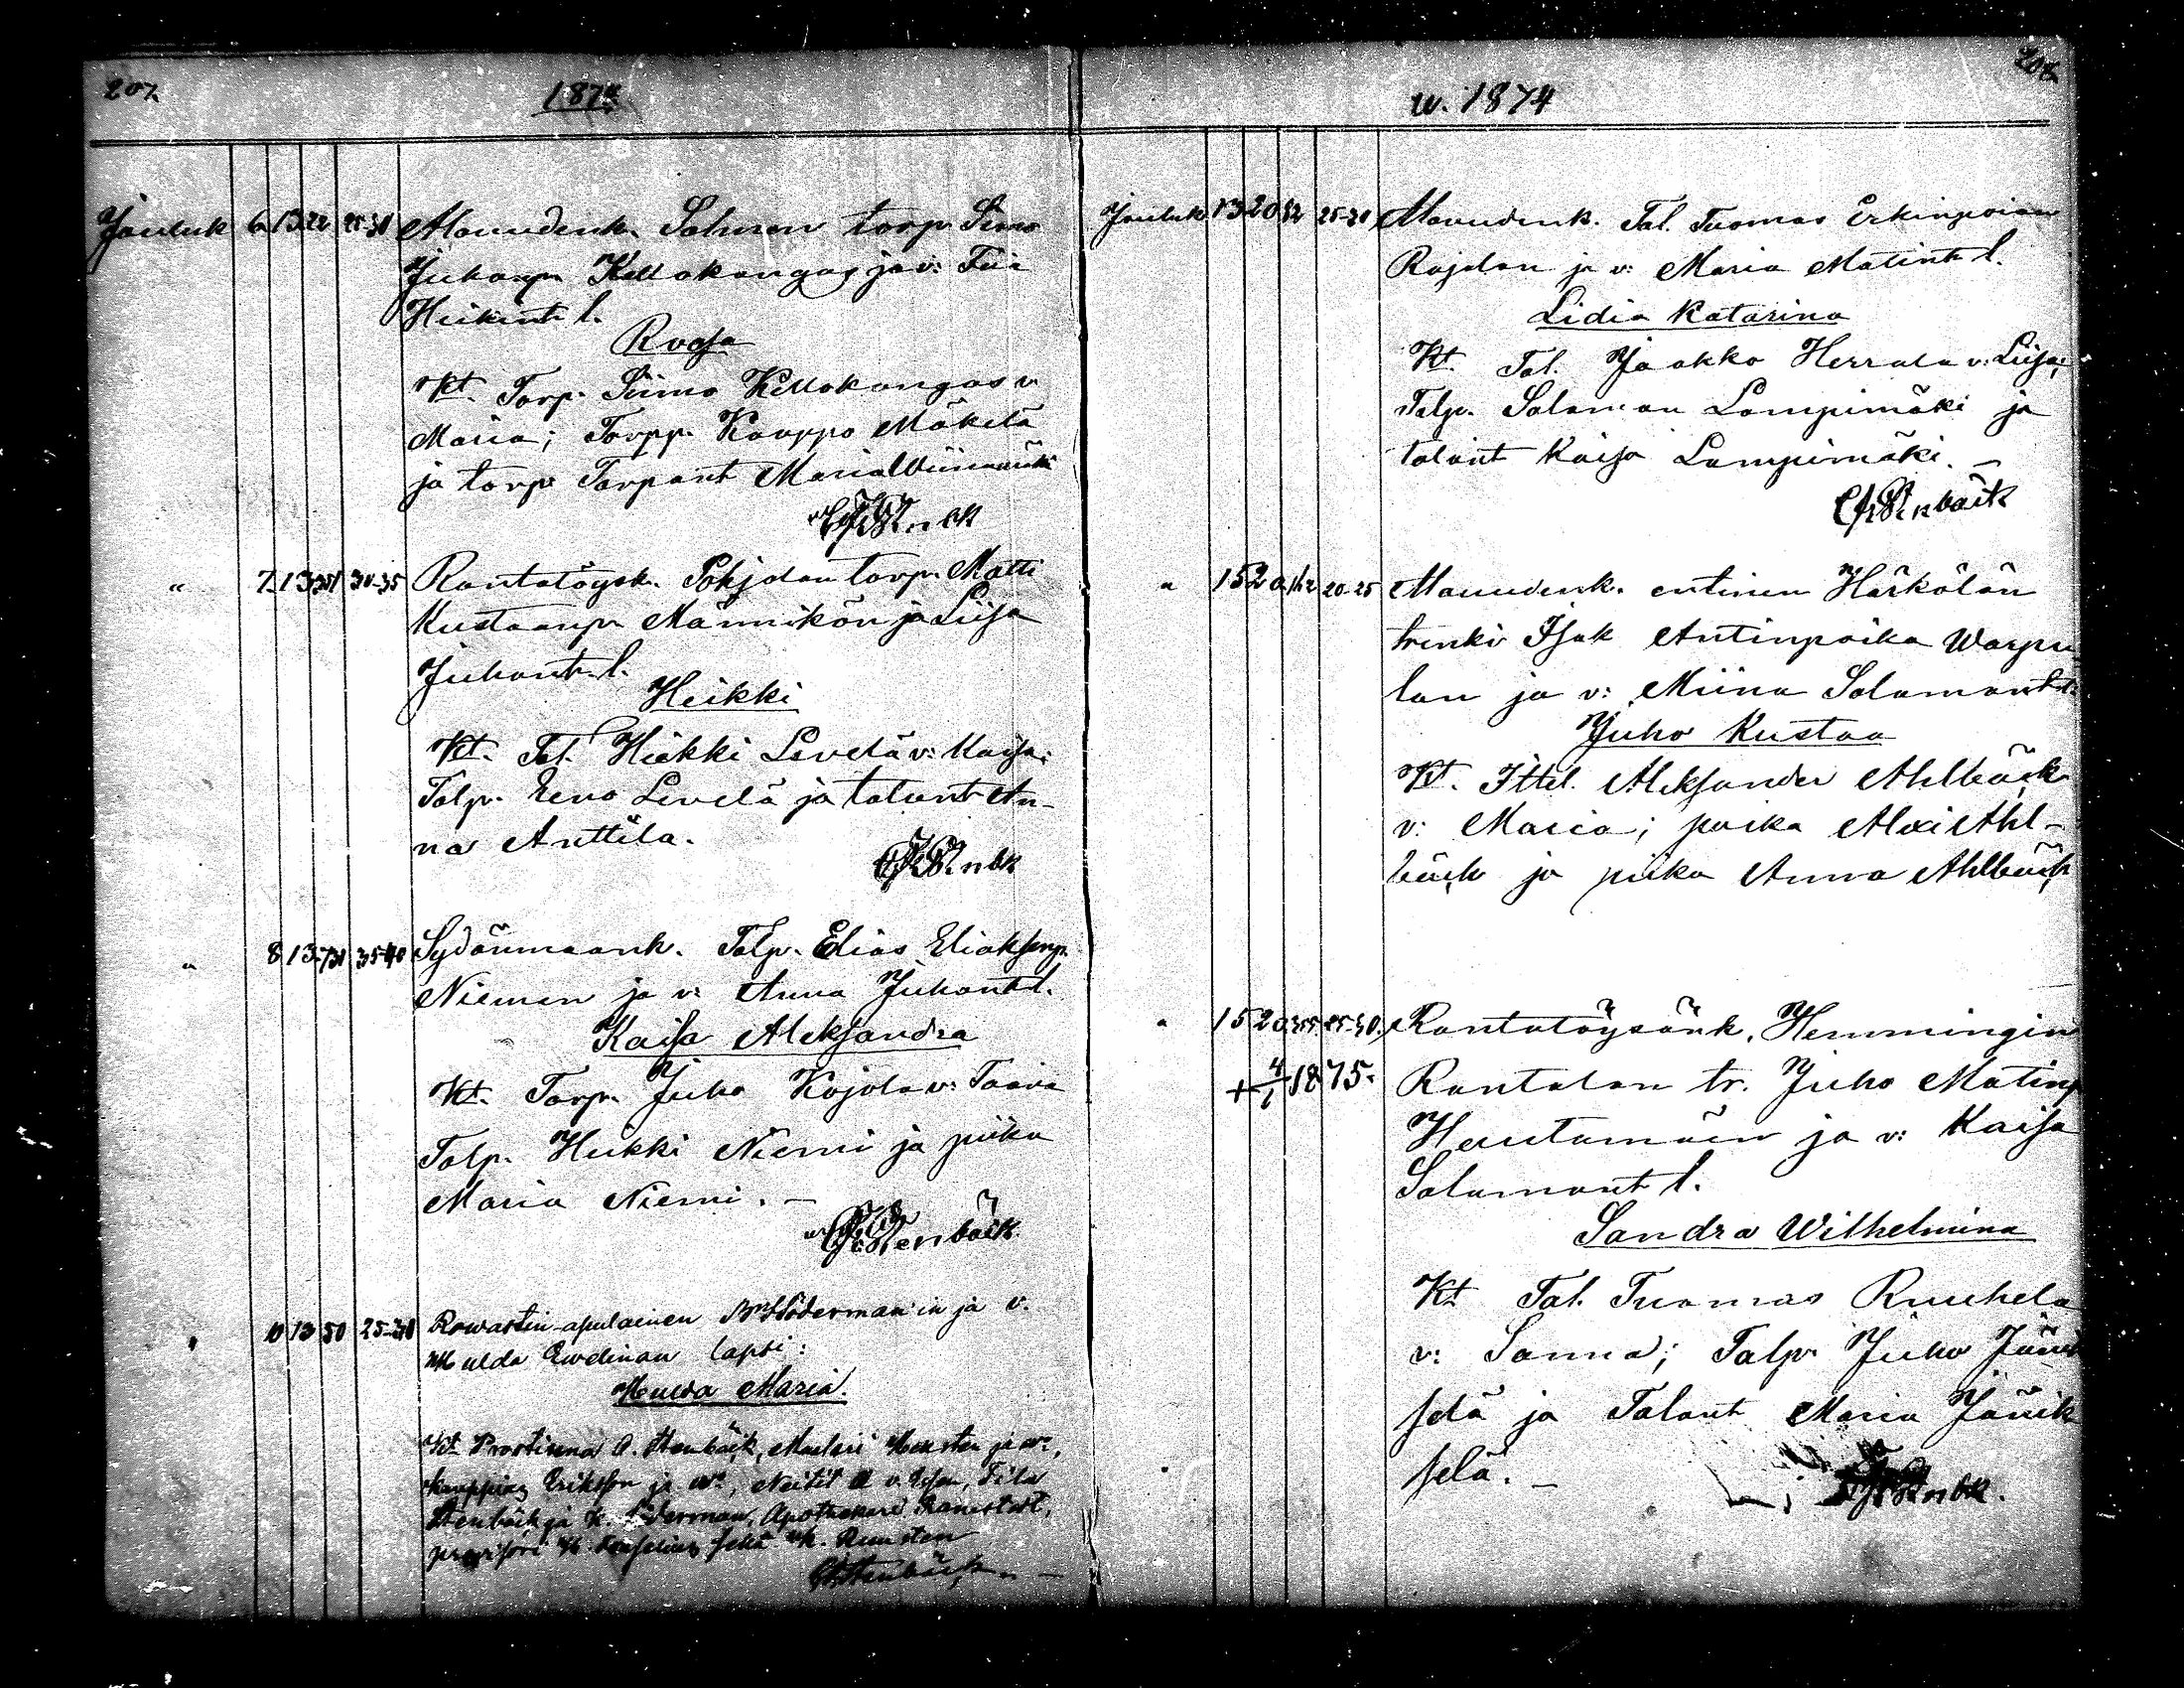 207.
1874
Jouluk 6 13 22 25-30 Alavudenk. Salmen torp. Simo
Juhanp. Kellokangas ja v: Fiia
Heikint. l.
Roosa
Kt. Torp. Simo Kellokangas v.
Maria; Torpp. Kaappo Mäkelä
ja torp. Torpant Maria Viinamäki
" 7 13 30-35 Rantatöysk. Pohjolan torp. Matti
Kustaanp. Männikön ja Liisa
Juhant. l.
Heikki
Kt. Tal. Heikki Levelä v: Kaisa;
Talp. Eero Levelä ja talont An-
na Anttila.
" 8 13 35-40 Sydänmaank. Talp. Elias Eliaksenp.
Niemen ja v: Anna Juhant. l.
Kaisa Aleksandra
Kt. Torp. Juho Kojola v: Taava
Talp. Heikki Niemi ja piika
Maria Niemi. —
Stenbäck
" 10 13 50 25-30 Rowastin-apulainen Södermanin ja v.
Hulda Ewelinan lapsi:
Maria.
Kt. Prostinna A. Stenbäck, ja
Erikson ja Neitit
Stenbäck ja Söderman, Apothekare
provisori
Stenbäck. —
208.
w. 1874
Jouluk 13 20 52 25-30 Alavudenk. Tal. Tuomas Erkinpoian
Rajalan ja v: Maria Matint. l.
Lidia Katarina
Kt. Tal. Jaakko Herrala v: Liisa;
Talp. Salamon Lampimäki ja
talont Kaisa Lampimäki. —
Stenbäck
" 15 20 20-25 Alavudenk. entinen Härkälän
trenki Isak Antinpoika Warpu-
lan ja v: Miina Salamont. l.
Juho Kustaa
Kt. Ittel. Aleksander Ahlbäck
v: Maria; poika Ahl-
bäck ja piika Anna Ahlbäck
" 15 20 25-30 Rantatöysänk. Hemmingin
+ 4/1 1875. Rantalan tr. Juho Matinp
Hautamäen ja v: Kaisa
Salamont l.
Sandra Wilhelmina
Kt. Tal. Tuomas Ruuhela
v: Sanna; Talp. Juho Jänik
selä ja Talont Maria Jänik
selä. —